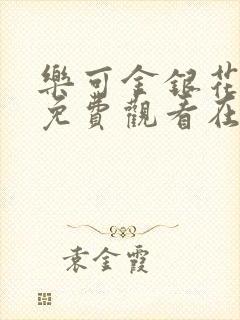 樂可金銀花
免費觀看在
袁金霞